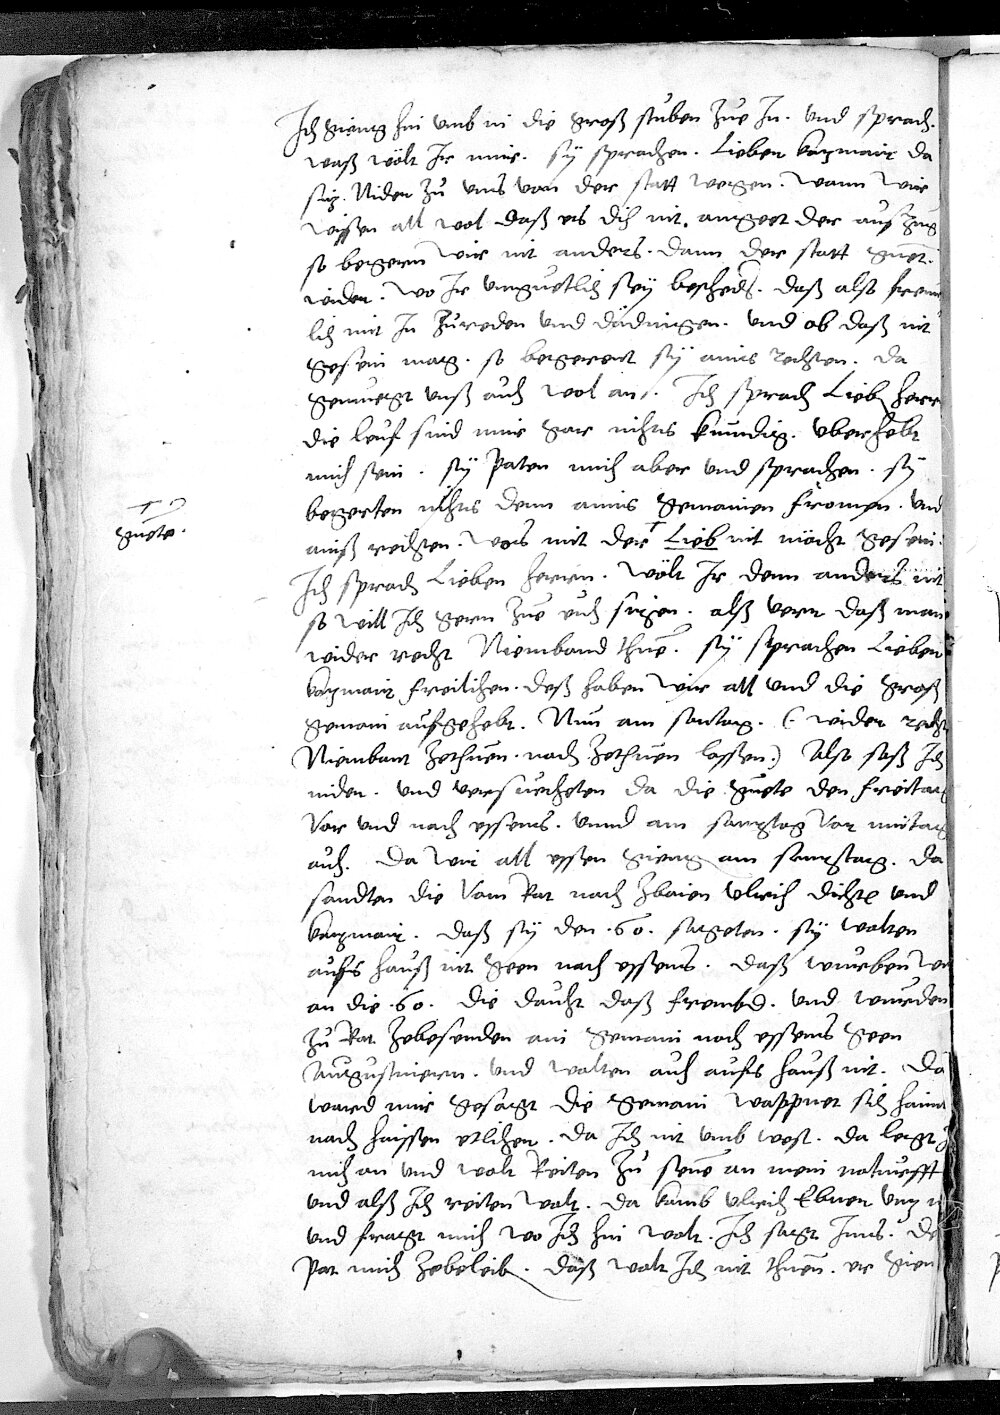 Ich gieng hin umb in die groß stuben zue In. und sprach.
waß wölt Ir mir. sÿ sprachen. Lieber kazmair da
siz. Nider zu uns von der statt wegen. wann wir
wissen all wol daß es dich nit angeet der aufzug
so begern wir nit anders. dann der statt guet.
wider. wo Ir unguetlich seÿ beschehen. daß also freunt
lich mit In zureden und dädingen. und ob daß nit
gesein mag. so begerent sÿ ains rechten. da
genuegt unß auch wol an. Ich sprach Lieb herr
die leuf sind mir gar nichts kundig. überhebt
mich sein. sÿ paten mich aber und sprachen. sÿ
begerten nichts denn ains gemainen fromen. und
ainß rechten. wos mit der Lieb nit möcht gesein.
guete.
Ich sprach Lieben herren. wölt Ir denn anders nit
so will Ich gern zue euch sizen. alß verr daß man
wider recht Niemband thue. sÿ sprachen Lieber
kazmair freilichen. deß haben wir all und die groß
gemain aufgehebt. Nun am sontag. (wider recht
Niembant zethuen. noch zethuen lassen.) Also saß Ich
nider. und versuechten da die guete den freitag
vor und nach essens. unnd am samstag vor mittag
auch. Da wir all essen gieng am samstag. da
sandten die vom Rat nach zbaien Ulrich dichtl und
kazmair. daß sÿ den .60. sageten. sÿ wolten
aufs hauß nit geen nach essens. daß wurben wir
an die .60. die daucht daß frembd. und wurden
zu Rat zebesenden ain gemain nach essens geen
Augustinern. und wolten auch aufs hauß nit. Da
ward mir gesagt die gemain wappnet sich haim
nach haissen etlicher. da Ich nit umb west. da legt
mich an und wolt Reiten zu
und alß Ich reiten wolt. da kamb Ulrich Ebner
und fragt mich wo Ich hin wolt. Ich sagt Ims. Da
pat mich zebeleib. daß wolt Ich nit thuen. er gien